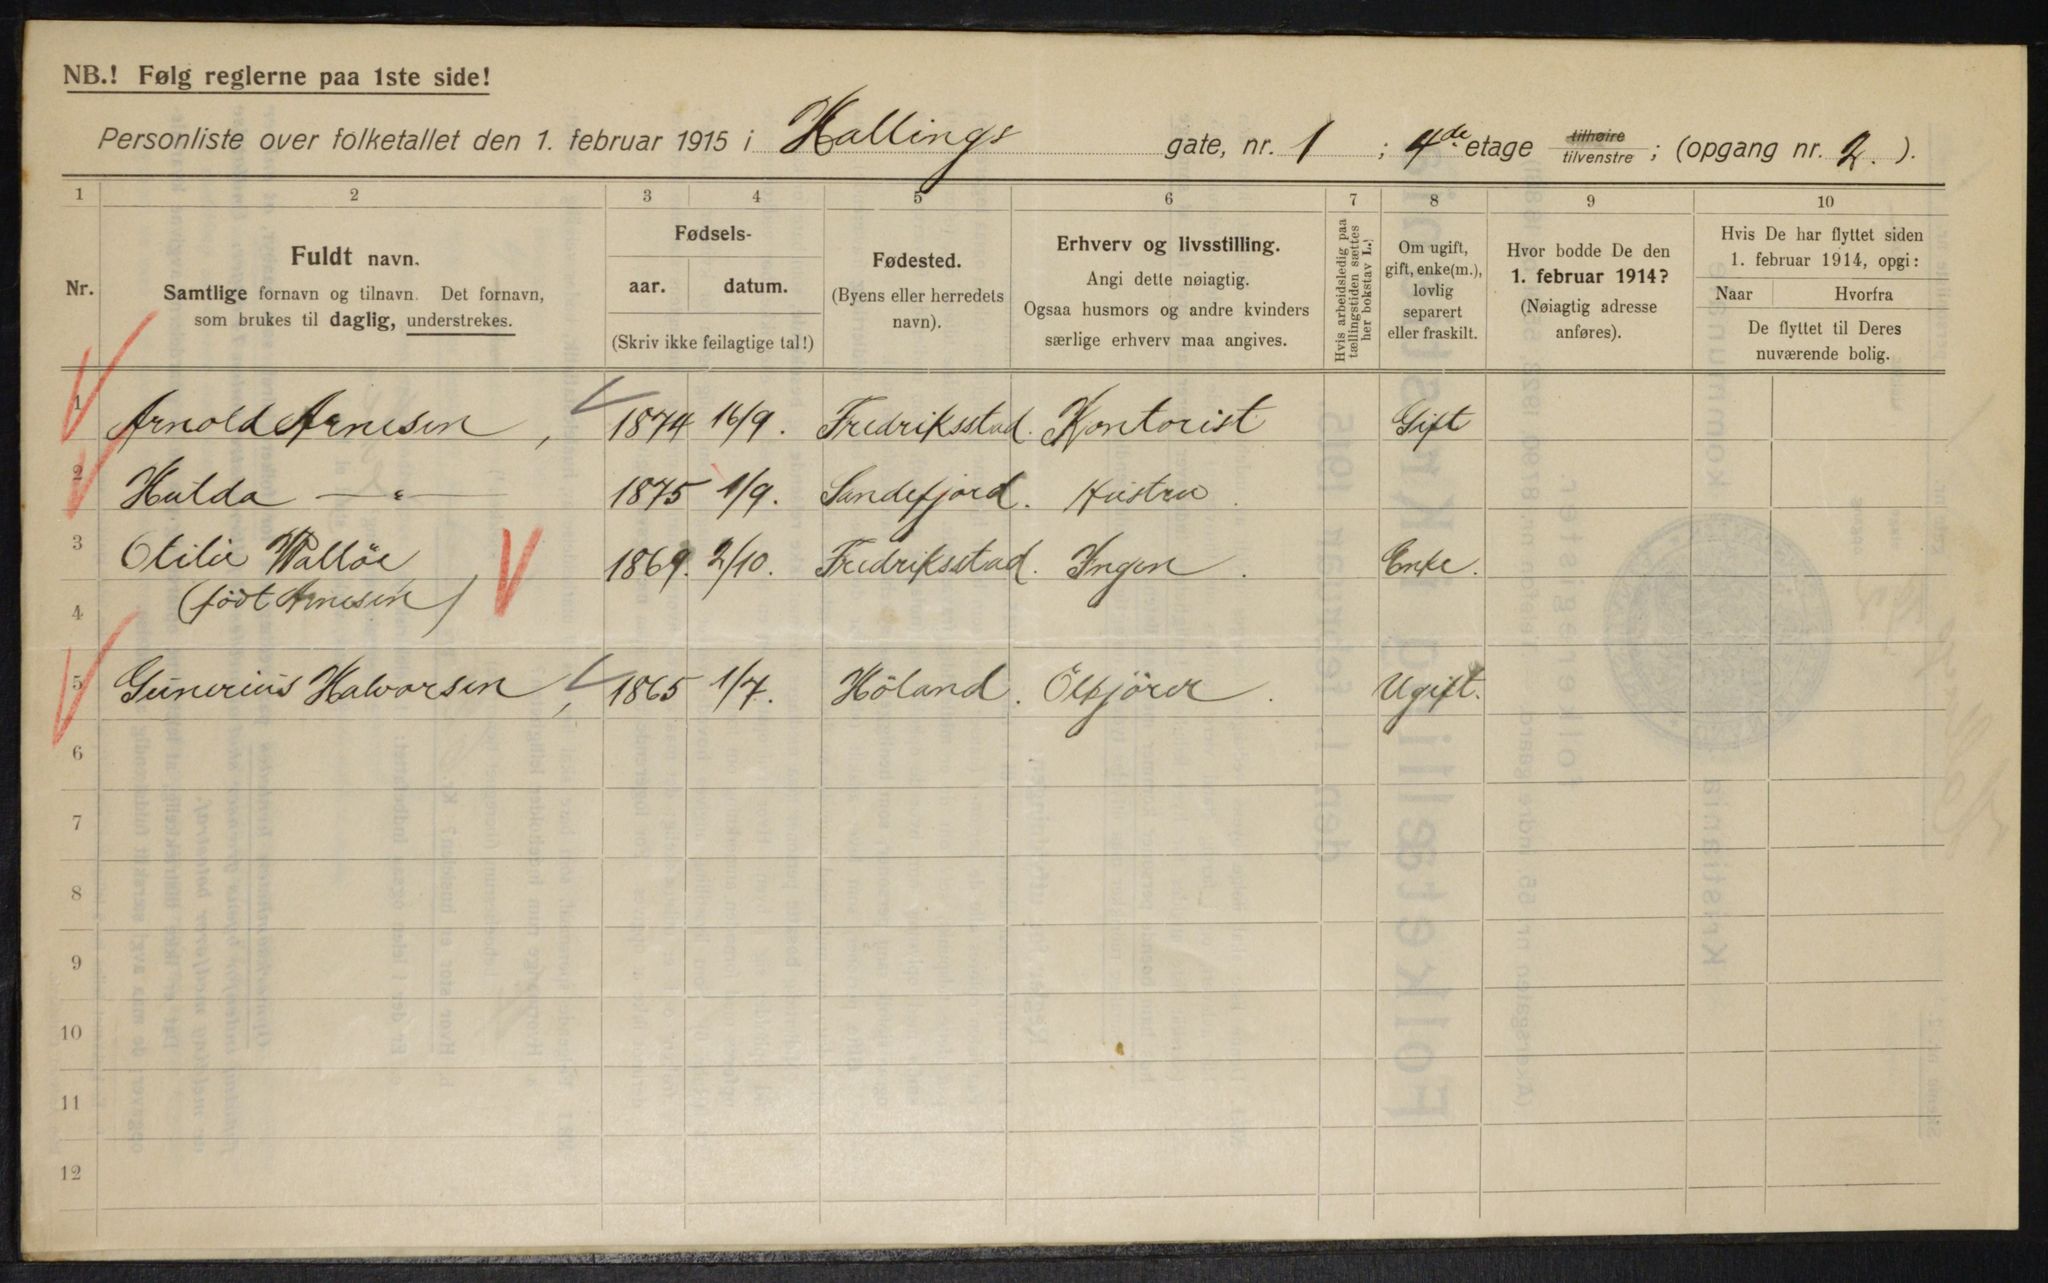 NB.! Følg reglerne paa 1ste side!
Personliste over folketallet den 1. februar 1915 i Hallings gate, nr. 1 ; 4de etage tilhøire tilvenstre ; (opgang nr. 2. ).
1 2 3 4 5 6 7 8 9 10
Nr.
Fuldt navn.
Samtlige fornavn og tilnavn. Det fornavn,
som brukes til daglig, understrekes.
Fødsels-
aar. datum.
(Skriv ikke feilagtige tal!)
Fødested.
(Byens eller herredets
navn).
Erhverv og livsstilling.
Angi dette nøiagtig.
Ogsaa husmors og andre kvinders
særlige erhverv maa angives.
Hvis arbeidsledig paa
tællingstiden sættes
her bokstav L.
Om ugift,
gift, enke(m.),
lovlig
separert
eller fraskilt.
Hvor bodde De den
1. februar 1914?
(Nøiagtig adresse
anføres).
Hvis De har flyttet siden
1. februar 1914, opgi:
Naar Hvorfra
De flyttet til Deres
nuværende bolig.
1 Arnold Arnesen, 1874 16/9. Fredriksstad. Kontorist Gift
2 Hulda — " — 1875 1/9. Sandefjord. Hustru.
3 Otilie Walløe 1869. 2/10. Fredriksstad. Ingen. Enke.
4 (født Arnesen)
5 Gunerius Halvorsen, 1865 1/7. Höland. Ölkjörer. Ugift.
6
7
8
9
10
11
12